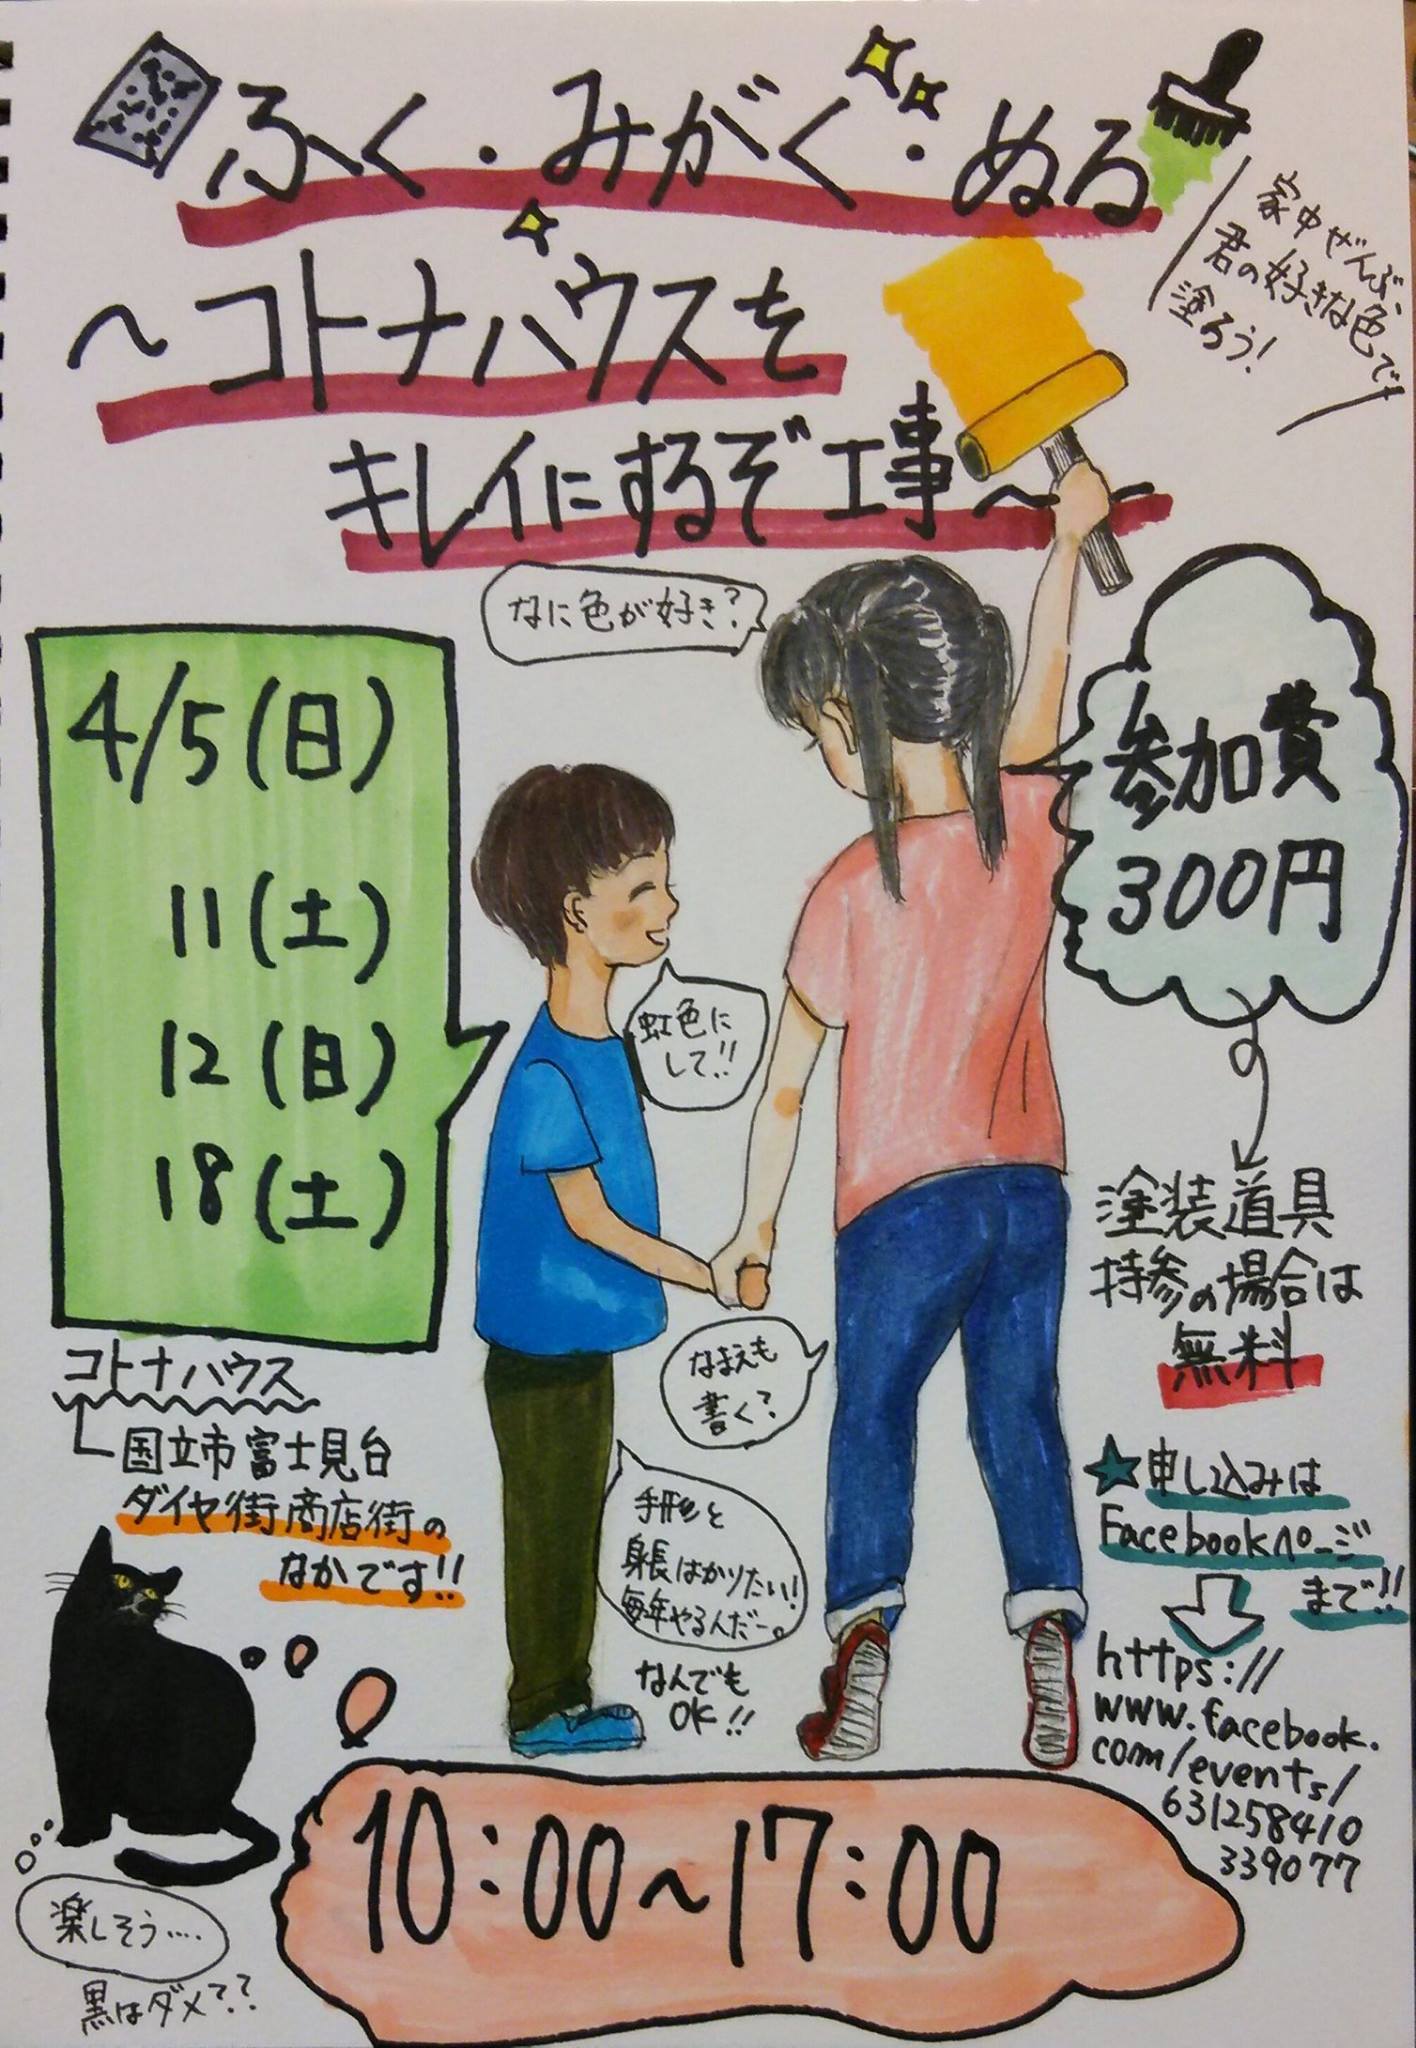 ふく・みがく・ぬる
〜コトナハウスを
キレイにするぞ工事〜
家中ぜんぶ、
君の好きな色で
塗ろう!
なに色が好き?
4/5(日)
11(土)
12(日)
18(土)
虹色に
して!!
参加費
300円
塗装道具
持参の場合は
無料
なまえも
書く?
手形と
身長はかりたい!
毎年やるんだー。
なんでも
OK!!
コトナハウス
国立市富士見台
ダイヤ街商店街の
なかです!!
★申し込みは
Facebookページ
まで!!
https://
www.facebook.
com/events/
631258410
339077
10:00〜17:00
楽しそう....
黒はダメ??